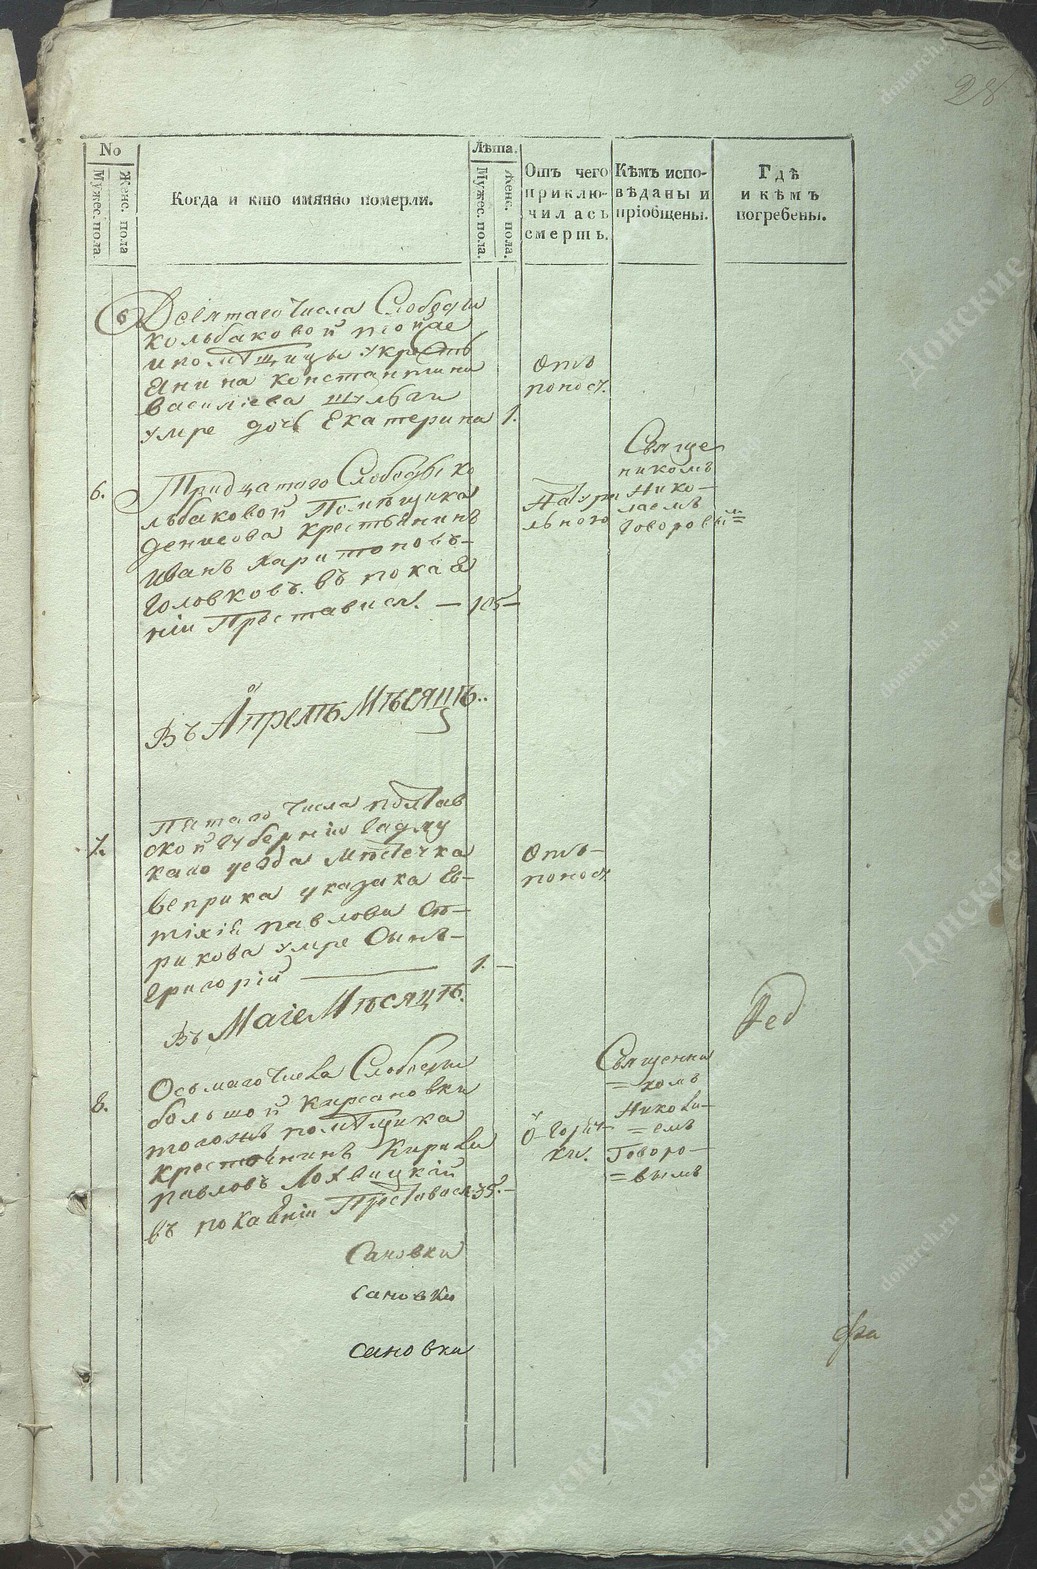 28
No
Мужес. пола.
Женс. пола
Когда и кто имянно померли.
Лѣта.
Мужес. пола.
Женс. пола.
Отъ чего
приклю-
чилась
смерть.
Кѣмъ испо-
вѣданы и
пріобщены.
Гдѣ
и кѣмъ
погребены.
6
Десятаго Числа Слободы
Кольбаковой
Анина Константина
Василіева Шульги
умре дочь Екатерина 1.
Отъ
поност.
6.
Тридцатаго Слободы Ко
льбаковой Помѣщика
Денисова Крестьянинъ
Иванъ Харитоновъ-
Головковъ. въ покая
ніи Преставися. — 105 —
Натури
льного
Свяще
никомъ
Нико-
лаемъ
Говоровым=
Въ Апрелѣ Мѣсяцѣ..
7.
Пятаго Числа Полтав
ской Губерніи Гадяц
каго уезда Мѣстечка
Веприка у казака Ев-
тіхій Павлова
рикова умре Сынъ-
Григорій 1. —
Отъ-
поност
Въ Маіе Мѣсяцѣ.
8.
Осьмаго Числа Слободы
большой Кирсановки
тогожъ помѣщика
крестьянинъ Кирила
Павловъ Лохвицкій
въ покаяніи Преставися. 35. —
Горяч-
ки.
Священни
=комъ
Никола-
=емъ
Говоро-
=вымъ
Сановки
сановки
сановки